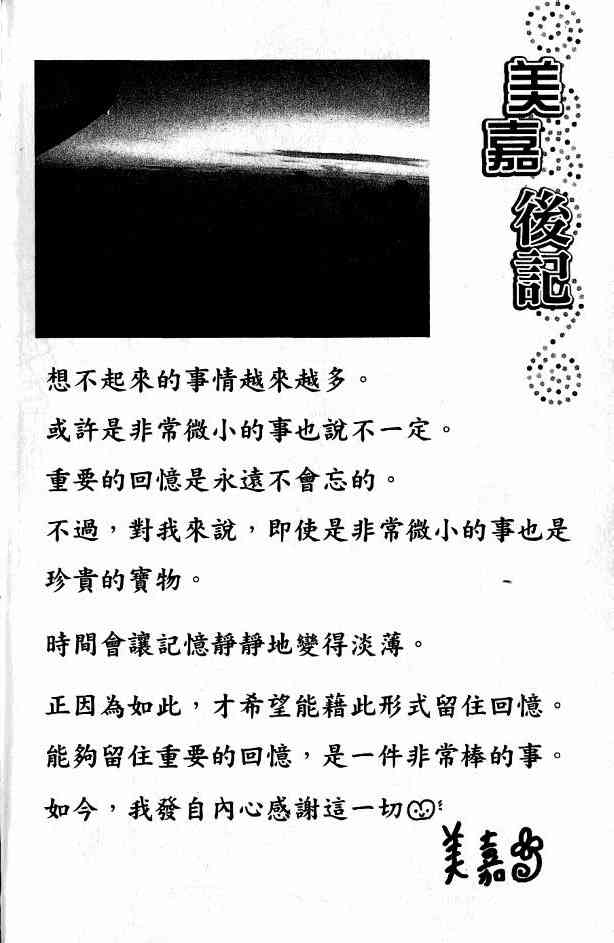 美嘉
後記
想不起來的事情越來越多。
或許是非常微小的事也說不一定。
重要的回憶是永遠不會忘的。
不過，對我來說，即使是非常微小的事也是
珍貴的寶物。
時間會讓記憶靜靜地變得淡薄。
正因為如此，才希望能藉此形式留住回憶。
能夠留住重要的回憶，是一件非常棒的事。
如今，我發自內心感謝這一切
美嘉